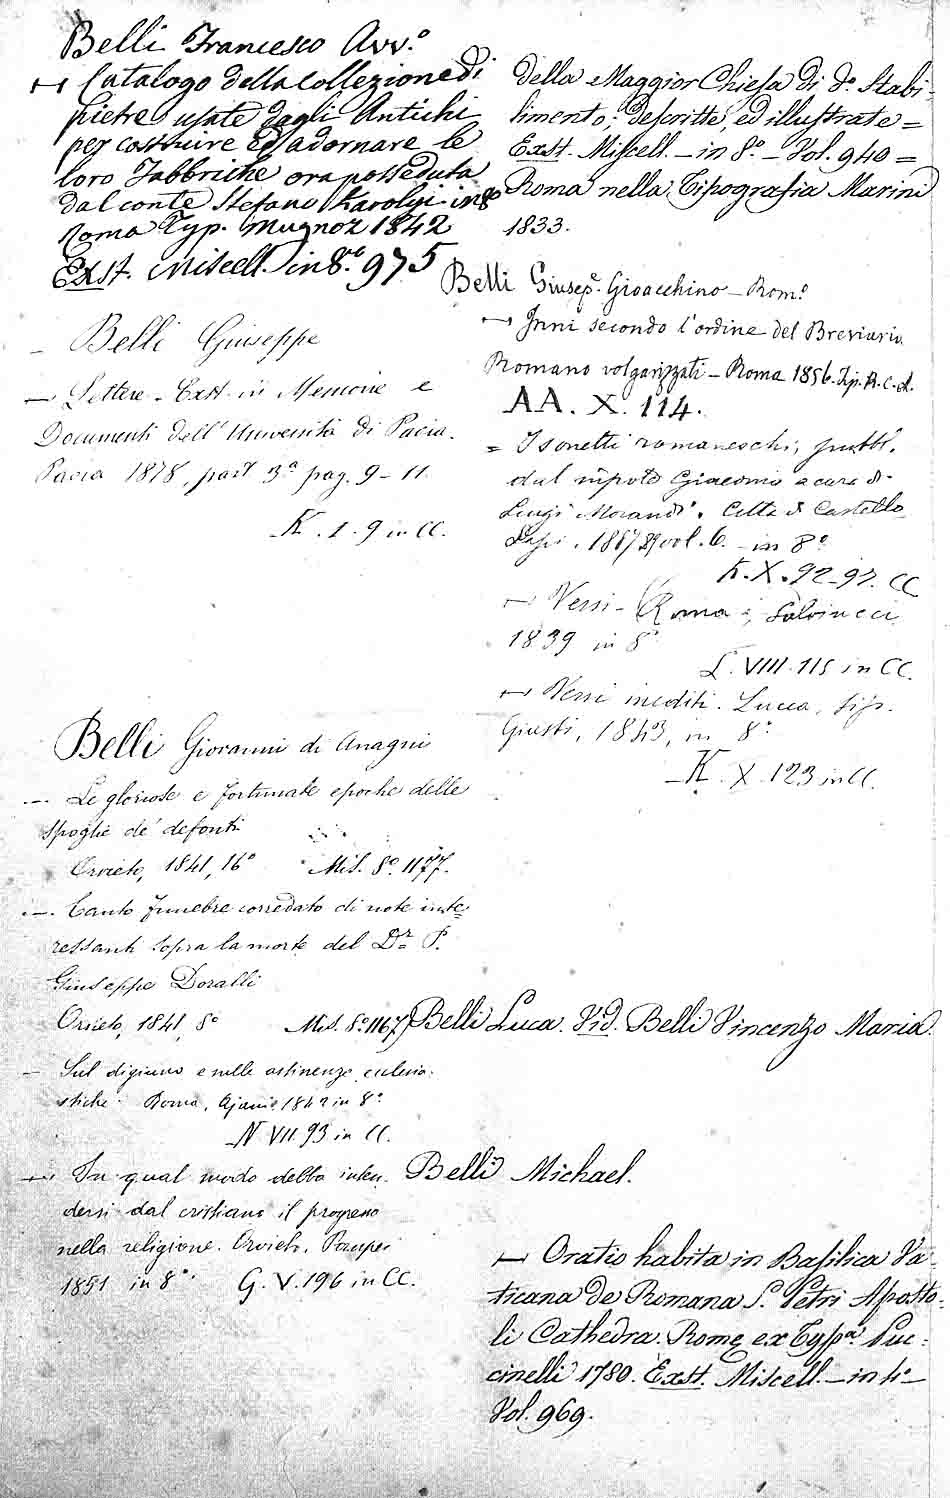 Belli Francesco Avv.º
⟼ Catalogo della collezione di
pietre usate dagli Antichi
per costruire ed adornare le
loro Fabbriche ora posseduta
dal conte Stefano Karolyi in 8º
Roma Typ. Mugnoz 1842
Exst. Miscell. in 8.º 975
– Belli Giuseppe
— Lettere - Exst. in Memorie e
Documenti dell' Università di Pavia.
Pavia 1878, part 3ª pag. 9 - 11.
K. 1. 9 in CC.
Belli Giovanni di Anagni
— Le gloriose e fortunate epoche delle
spoglie de' defonti
Orvieto, 1841, 16º Mis. 8º 1177.
— Canto funebre corredato di note inte-
ressanti sopra la morte del Dr. P.
Giuseppe Doralli
Orvieto, 1841, 8º Mis. 8º 1167
— Sul digiuno e sulle astinenze ecclesia-
stiche. Roma, Ajani 1842 in 8º
N VII. 93 in CC.
— In qual modo debba inten-
dersi dal cristiano il progresso
nella religione. Orvieto, Pompei
1851 in 8º. G. V. 196 in CC.
della Maggior Chiesa di dº. Stabi-
limento; descritte, ed illustrate =
Exst. Miscell. - in 8º. - Vol. 940 =
Roma nella Tipografia Marini
1833.
Belli Giusepe. Gioacchino - Romº
⟼ Inni secondo l'ordine del Breviario
Romano volgarizzati - Roma 1856. Tip. R. C. A.
AA. X. 114.
= I sonetti romaneschi, pubbl.
dal nipote Giacomo a cura di
Luigi Morandi. Città di Castello
Lapi. vol. 6. - in 8º
K. X. 92-97. CC
⟼ Versi - Roma, Salviucci
1839 in 8º
L. VIII. 115 in CC.
⟼ Versi inediti. Lucca, tip.
Giusti, 1843, in 8º
K. X. 123 in CC.
Belli Luca. Vid. Belli Vincenzo Maria.
Belli Michael.
⟼ Oratio habita in Basilica Va-
ticana de Romana S. Petri Aposto-
li Cathedra. Romę ex Typª. Puc-
cinelli 1780. Exst. Miscell. - in 4º -
Vol. 969.